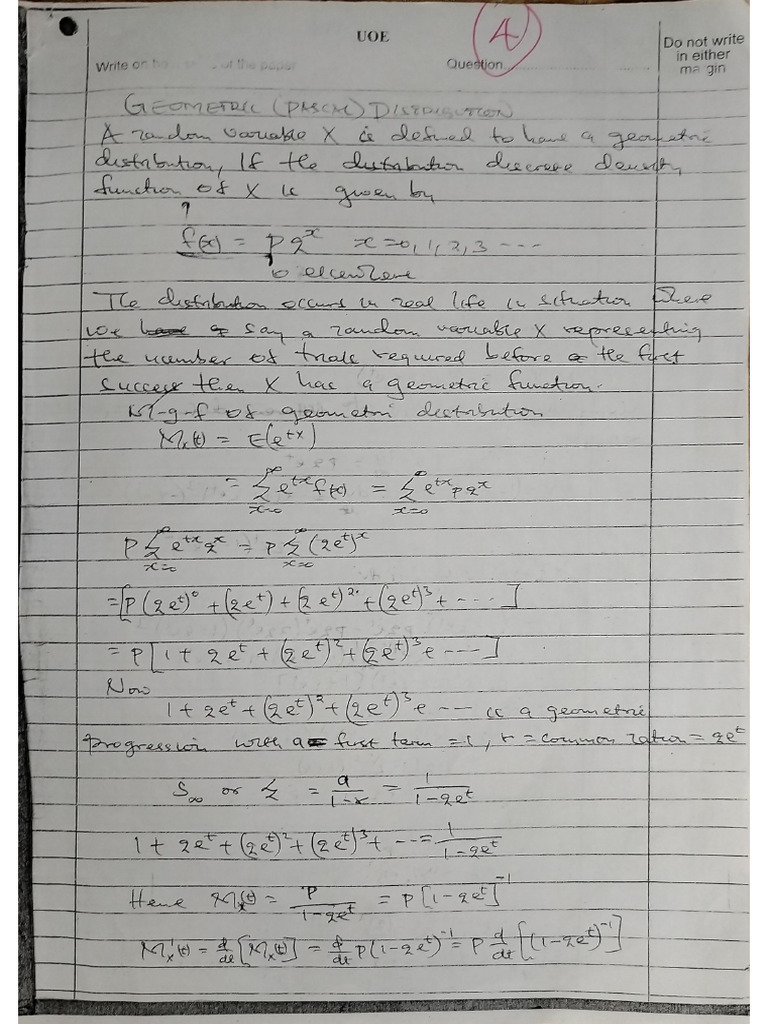 UOE
A
Write on the paper
Question
Do not write
in either
margin
GEOMETRIC (PASCAL) DISTRIBUTION
A random variable X is defined to have a geometric
distribution, If the distribution discrete density
function of X is given by
f(x) = p q^x x = 0, 1, 2, 3 ---
0 elsewhere
The distribution occurs in real life in situation where
we say a random variable X representing
the number of trials required before the first
success then X has a geometric function.
M-g-f of geometric distribution
Mx(t) = E(e^tx)
= ∑_{x=0}^∞ e^tx f(x) = ∑_{x=0}^∞ e^tx p q^x
p ∑_{x=0}^∞ e^tx q^x = p ∑_{x=0}^∞ (qe^t)^x
= [p (qe^t)^0 + (qe^t) + (qe^t)^2 + (qe^t)^3 + ----]
= p [1 + qe^t + (qe^t)^2 + (qe^t)^3 + ---]
Now
1 + qe^t + (qe^t)^2 + (qe^t)^3 + --- is a geometric
progression with a first term = 1, r = common ration = qe^t
S∞ or ∑ = a/(1-r) = 1/(1-qe^t)
1 + qe^t + (qe^t)^2 + (qe^t)^3 + --- = 1/(1-qe^t)
Hence Mx(t) = p/(1-qe^t) = p[1-qe^t]^-1
M'x(t) = d/dt [Mx(t)] = d/dt p(1-qe^t)^-1 = p d/dt [(1-qe^t)^-1]